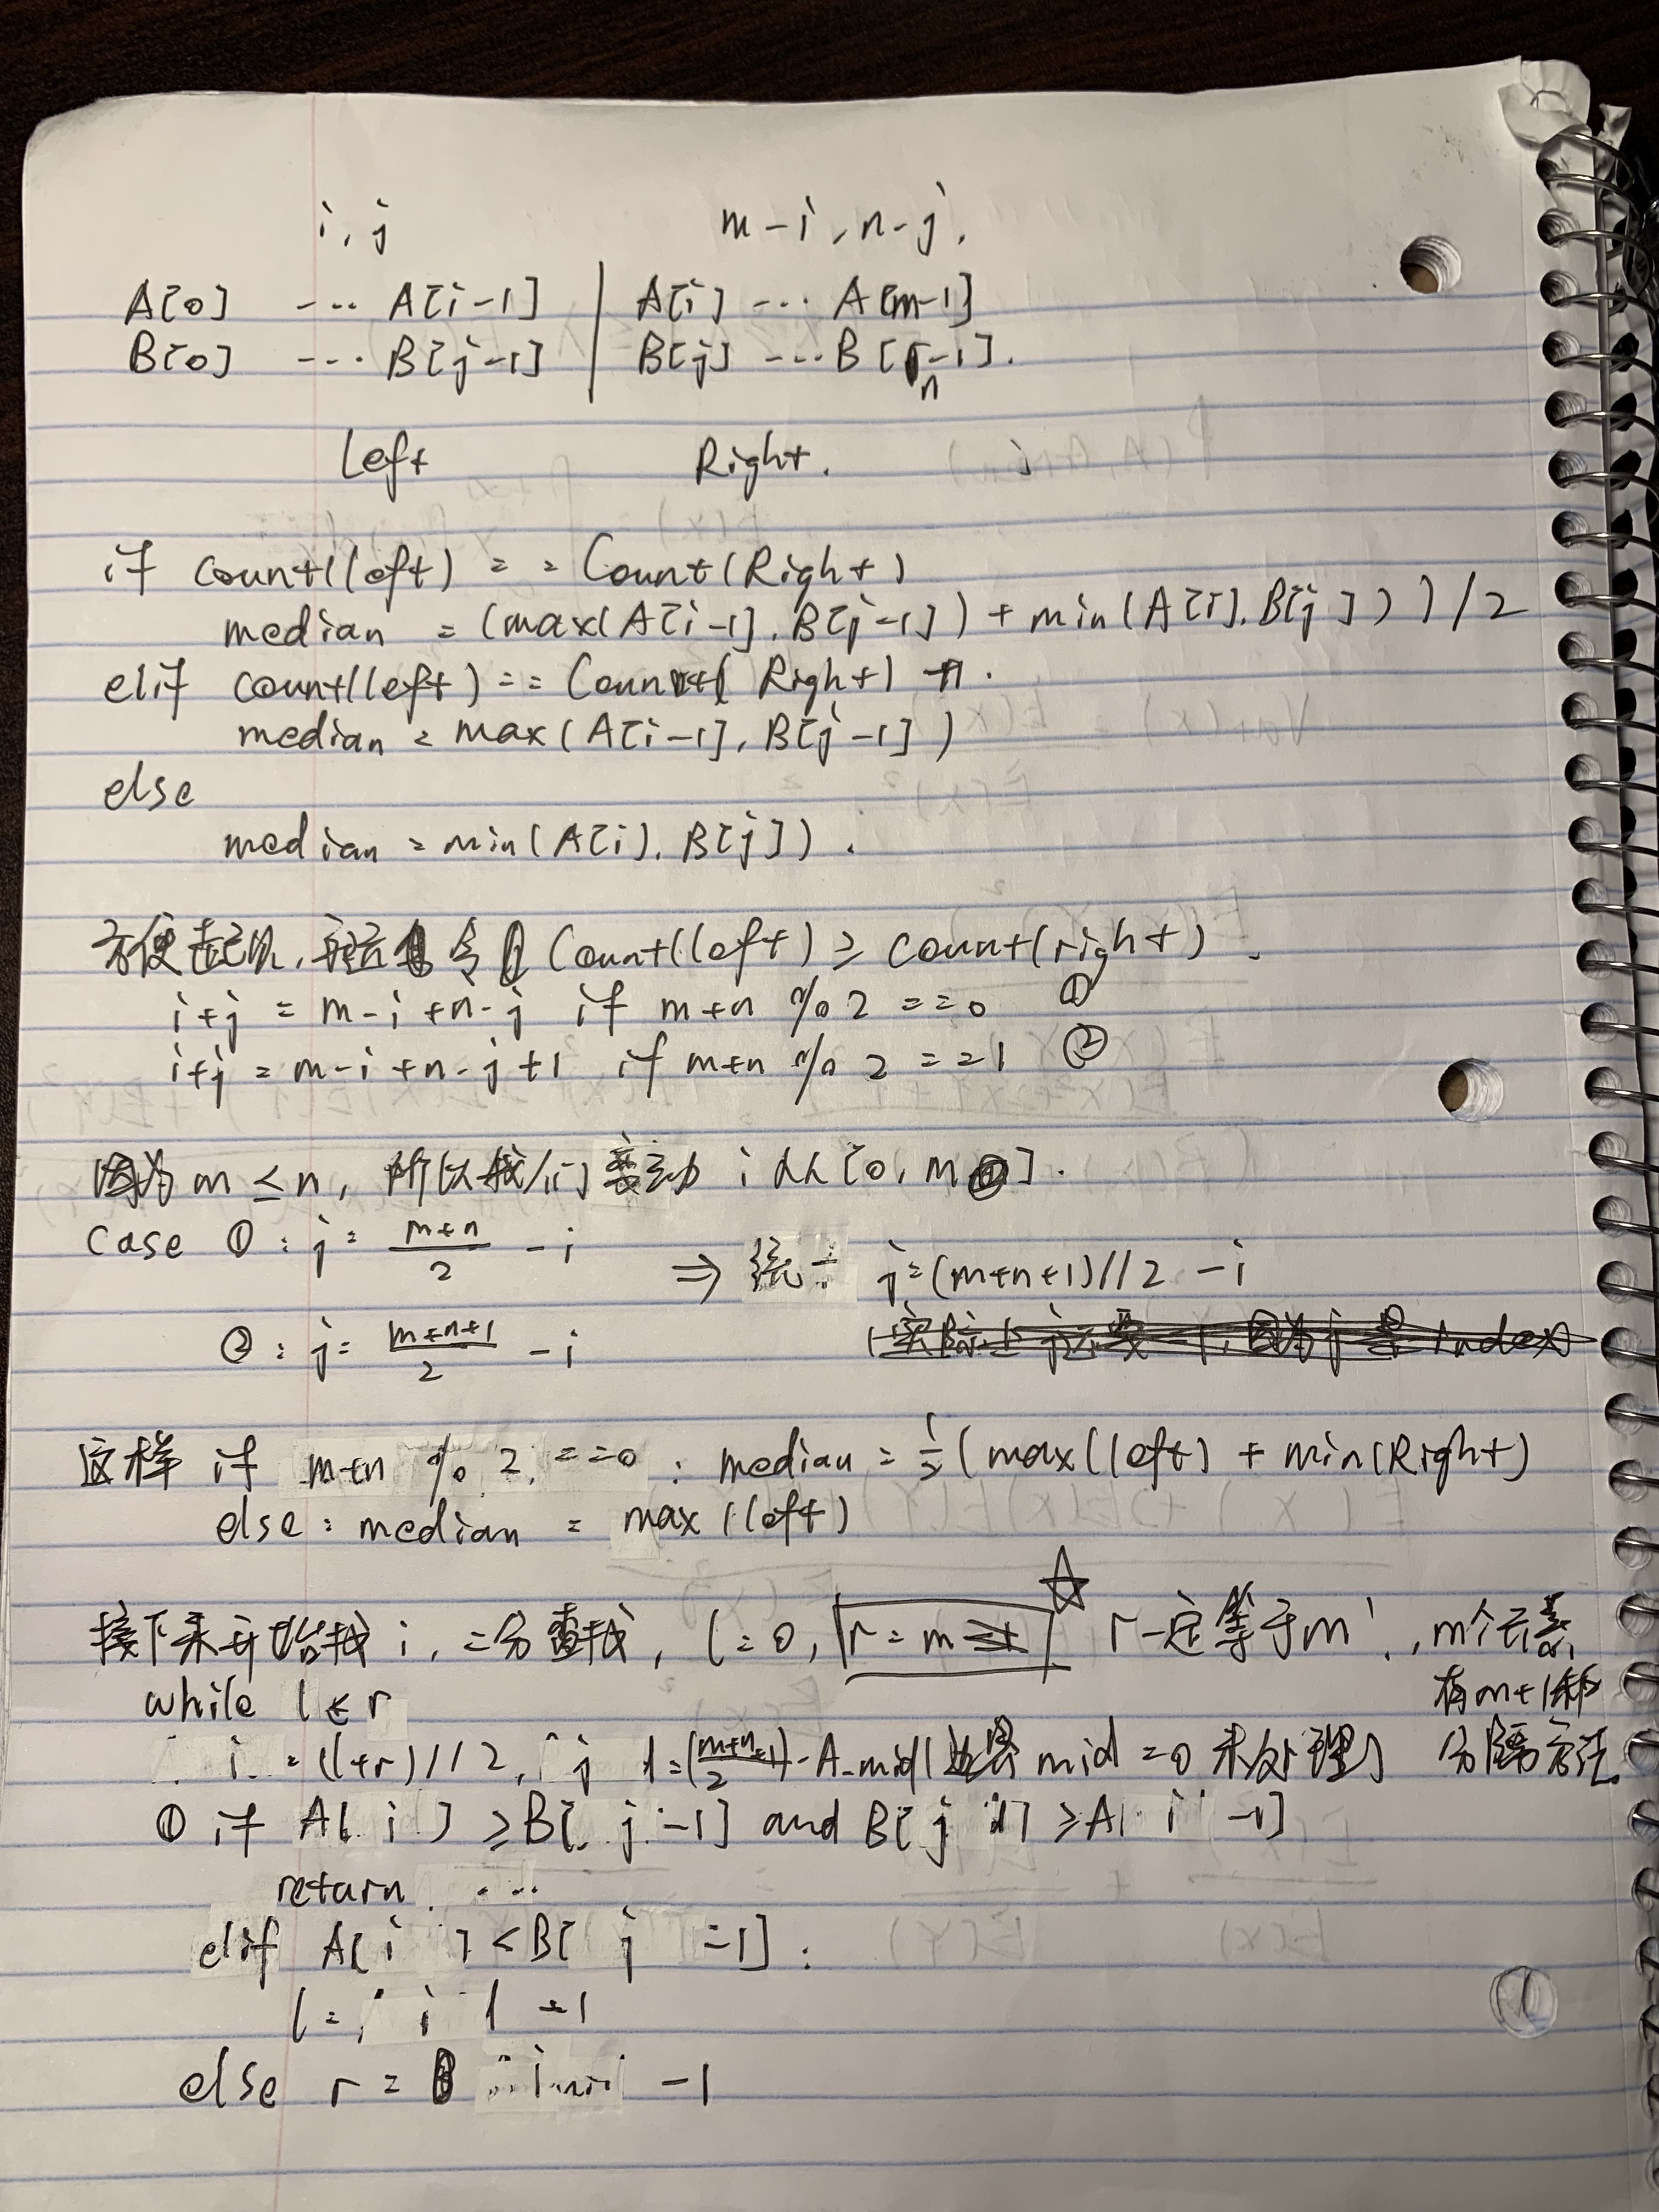 i, j m-i, n-j.
A[0] ... A[i-1] | A[i] ... A[m-1]
B[0] ... B[j-1] | B[j] ... B[n-1].
Left Right.
if count(left) == Count(Right)
median = (max(A[i-1], B[j-1]) + min(A[i], B[j]))/2
elif count(left) == Count(Right) +1.
median = max(A[i-1], B[j-1])
else
median = min(A[i], B[j]).
方便起见, 令 Count(left) ≥ count(right).
i+j = m-i+n-j if m+n % 2 ==0 ①
i+j = m-i+n-j+1 if m+n % 2 ==1 ②
因为 m ≤ n, 所以我们要动 i 从[0, m].
Case ①: j = (m+n)/2 - i
⇒ 统一 j=(m+n+1)//2 -i
②: j= (m+n+1)/2 - i
这样 if m+n % 2 ==0: median = 1/2(max(left) + min(Right)
else: median = max(left)
接下来开始找 i, 二分查找, l=0, r=m ☆ r一定等于m!, m个元素
有m+1种
分隔方法.
while l≤r
i =(l+r)//2, j =((m+n+1)/2)-A_mid(边界 mid=0 未处理)
① if A[i] ≥B[j-1] and B[j] ≥A[i-1]
return ...
elif A[i] <B[j-1]:
l= i +1
else r = i -1